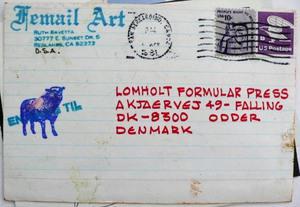 Femail Art
RUTH RAVETTA
30777 E. SUNSET DR. S
REDLANDS, CA 92373
U.S.A.
10c
US Postage
EN TIL
LOMHOLT FORMULAR PRESS
AKJAERVEJ 49 - FALLING
DK-8300 ODDER
DENMARK